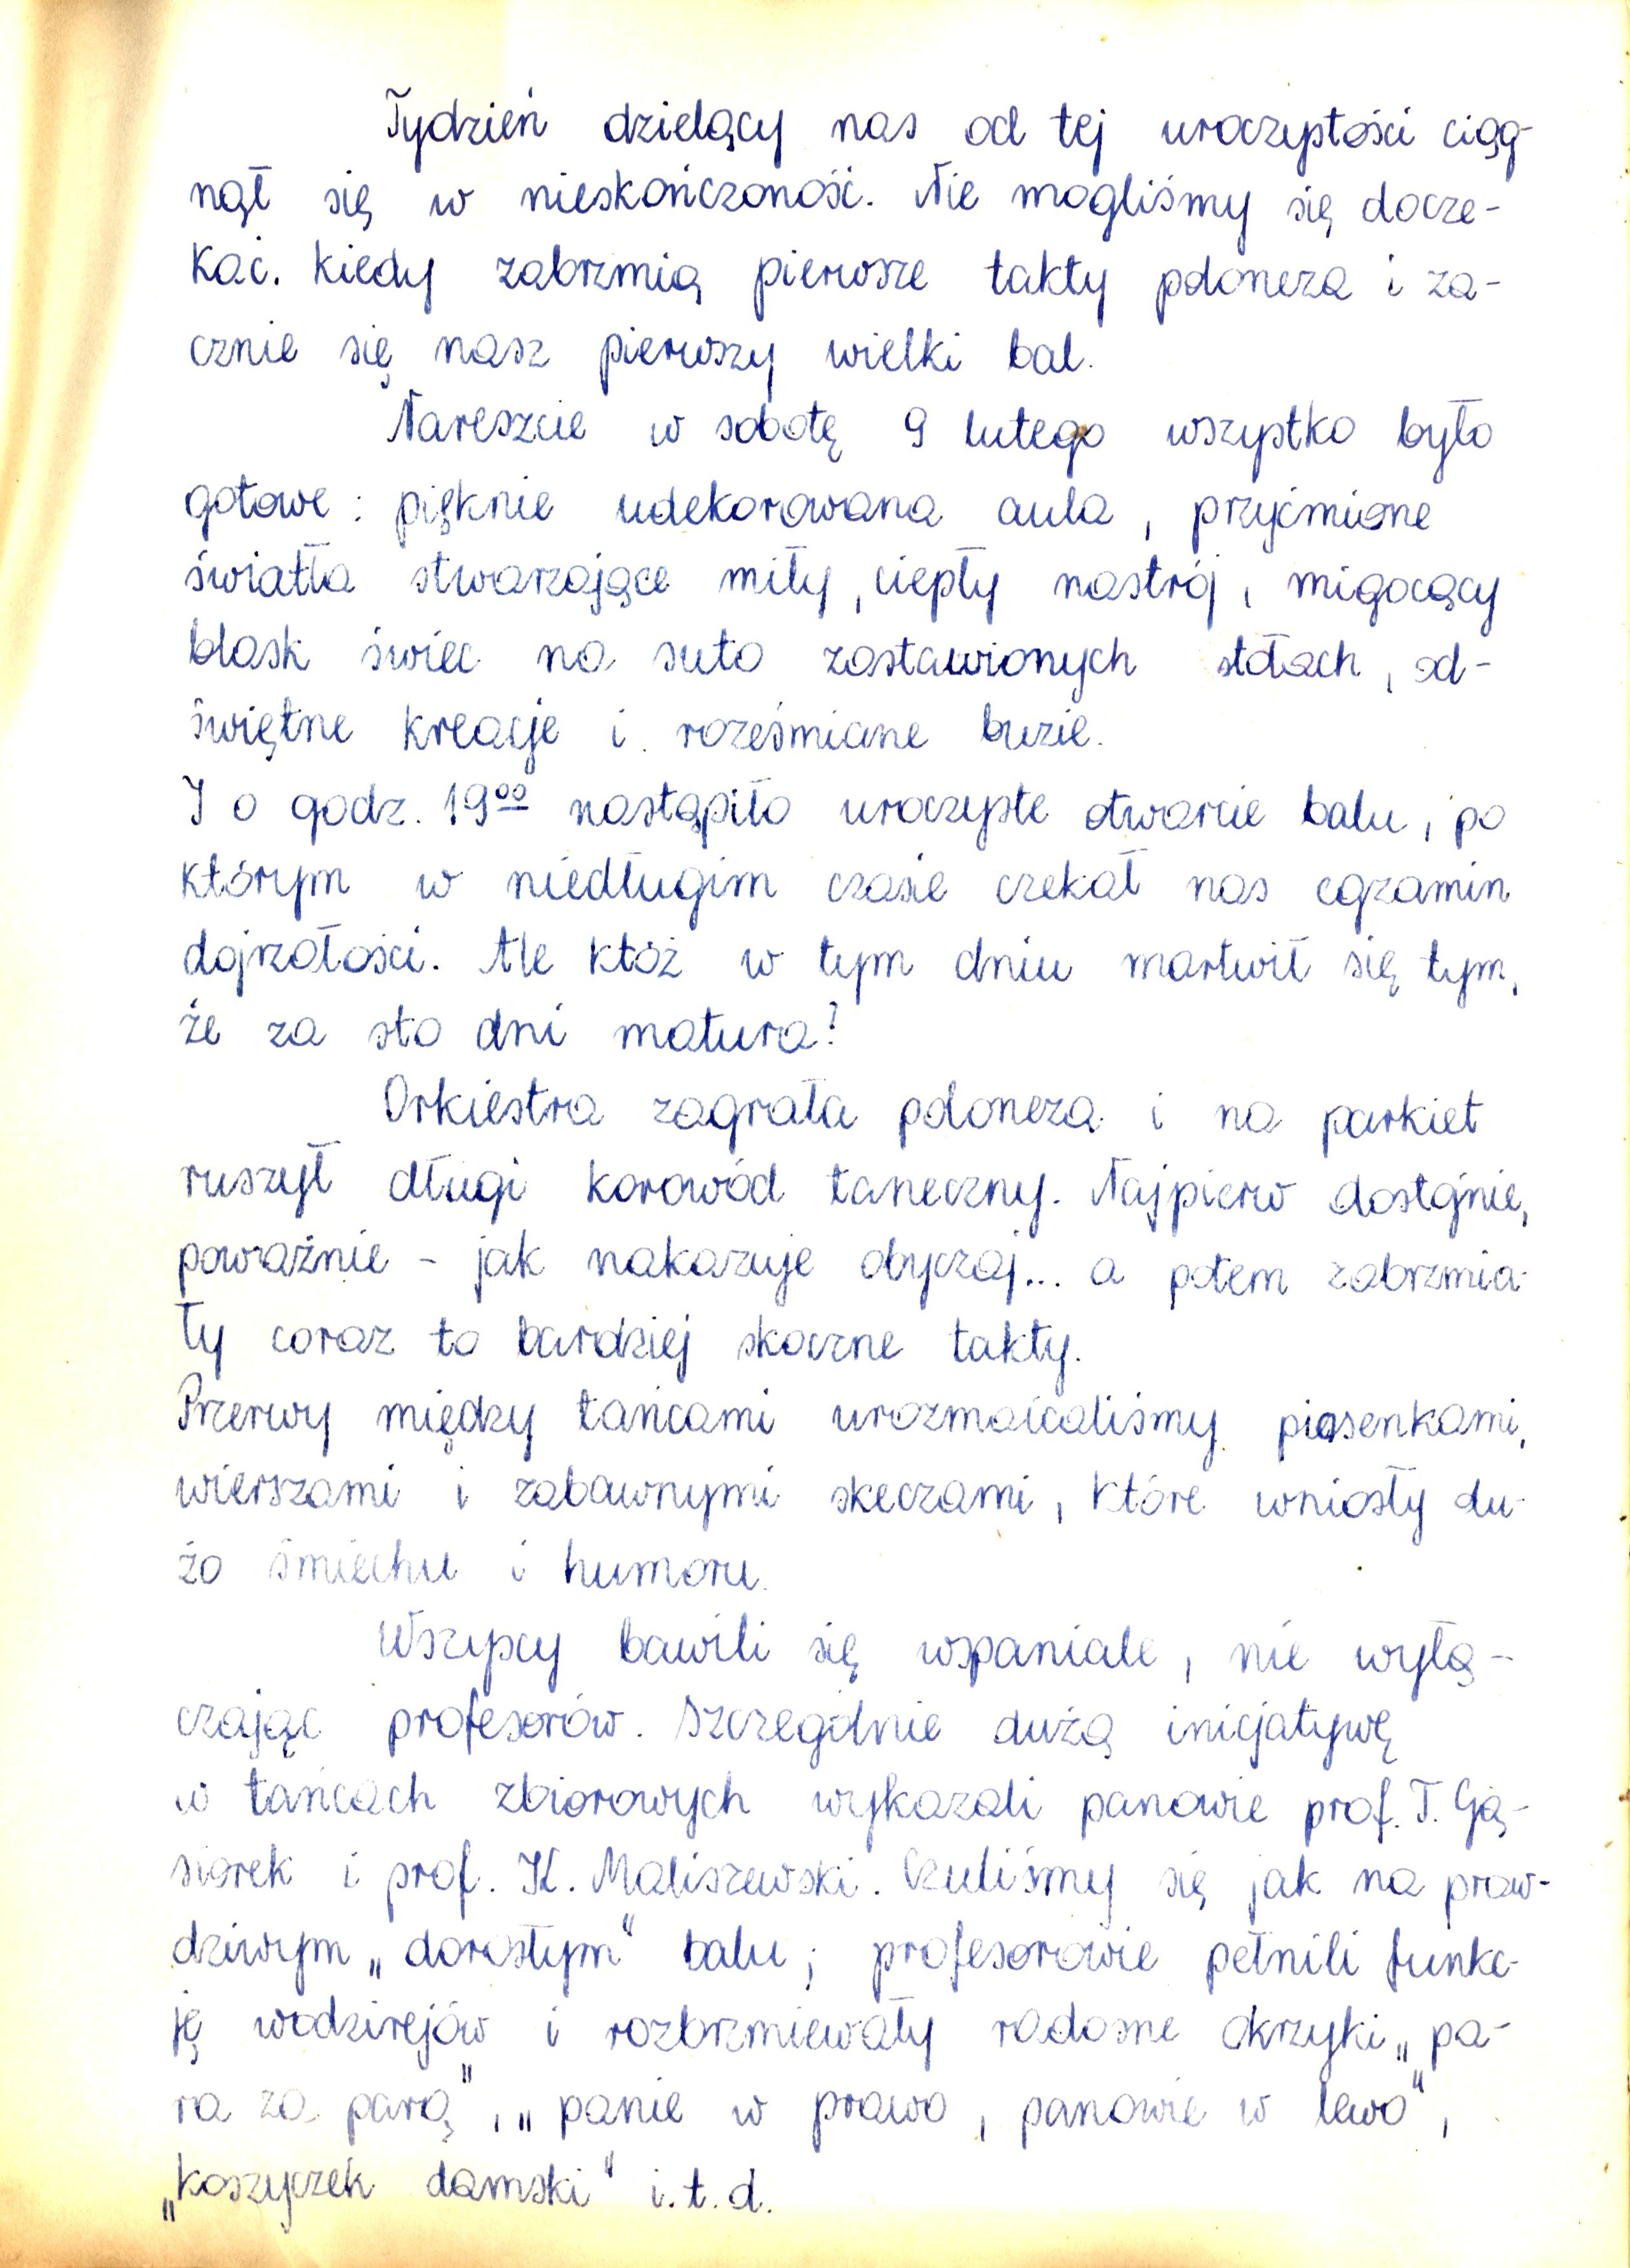 Tydzień dzielący nas od tej uroczystości ciąg-
nął się w nieskończoność. Nie mogliśmy się docze-
kać. kiedy zabrzmią pierwsze takty poloneza i za-
cznie się nasz pierwszy wielki bal.
Nareszcie w sobotę 9 lutego wszystko było
gotowe : pięknie udekorowana aula, przyćmione
światła stwarzające miły, ciepły nastrój, migocący
blask świec na suto zastawionych stołach, od-
świętne kreacje i roześmiane buzie.
I o godz. 19⁰⁰ nastąpiło uroczyste otwarcie balu, po
którym w niedługim czasie czekał nas egzamin
dojrzałości. Ale któż w tym dniu martwił się tym,
że za sto dni matura?
Orkiestra zagrała poloneza i na parkiet
ruszył długi korowód taneczny. Najpierw dostojnie,
poważnie - jak nakazuje obyczaj... a potem zabrzmia-
ły coraz to bardziej skoczne takty.
Przerwy między tańcami urozmaicaliśmy piosenkami,
wierszami i zabawnymi skeczami, które wniosły du-
żo śmiechu i humoru.
Wszyscy bawili się wspaniale, nie wyłą-
czając profesorów. Szczególnie dużą inicjatywę
w tańcach zbiorowych wykazali panowie prof. T. Gą-
siorek i prof. K. Maliszewski. Czuliśmy się jak na praw-
dziwym „dorosłym" balu; profesorowie pełnili funkc-
ję wodzirejów i rozbrzmiewały radosne okrzyki „pa-
ra za parą", „panie w prawo, panowie w lewo",
„koszyczek damski" i.t.d.